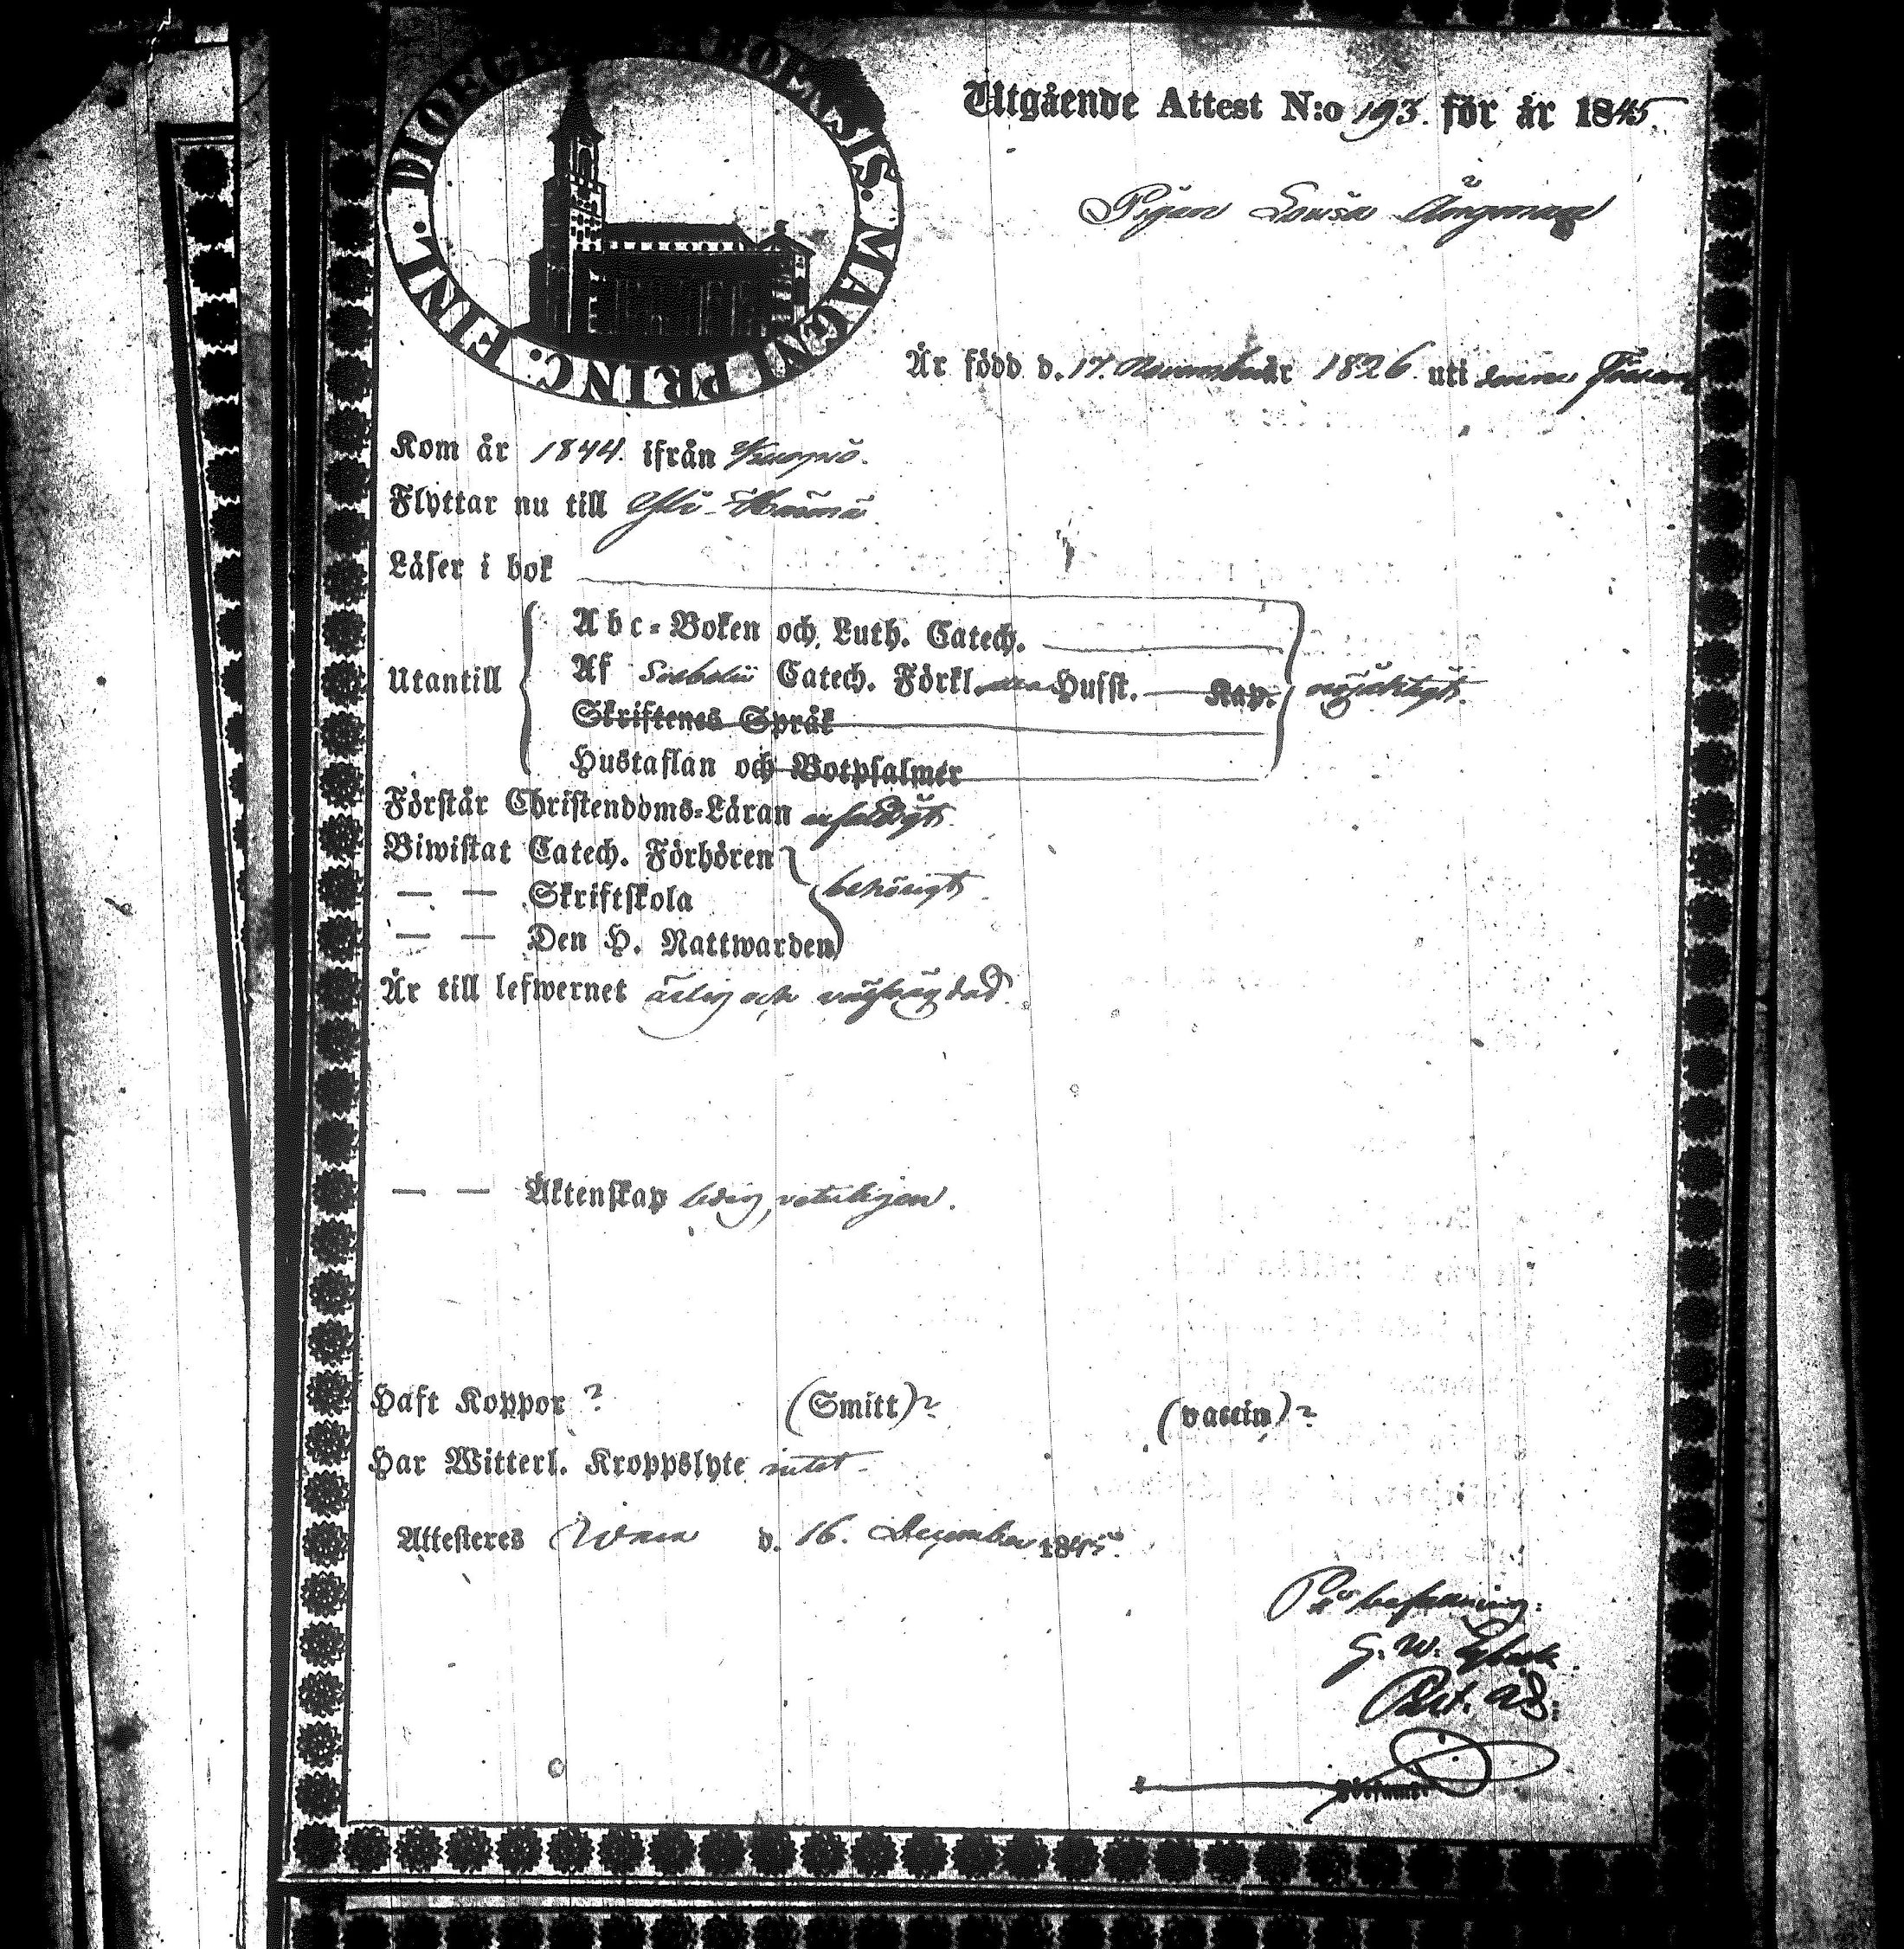 DIOECES. ABOENSIS. MAGNI PRINC. FINL.
Utgående Attest N:o 193. för år 1845.
Pigan Lovisa Ångman
Är född d. 17. November år 1826. uti denna
Kom år 1844. ifrån
Flyttar nu till
Läser i bok
Abc-Boken och Luth. Catech.
Utantill Af Svebelii Catech. Förkl. Husst. Kap. nöjaktigt.
Skriftenes Språk
Hustaflan och Botpsalmer
Förstår Christendoms-Läran enfaldigt.
Biwistat Catech. Förhören
— — Skriftskola behörigt
— — Den H. Nattwarden
Är till lefwernet ärlig och välfrägdad.
— — Äktenskap ledig, veterligen.
Haft Koppor ? (Smitt) ? (vaccin) ?
Har Witterl. Kroppslyte intet.
Attesteres d. 16. December 1845.
På befallning:
G. W.